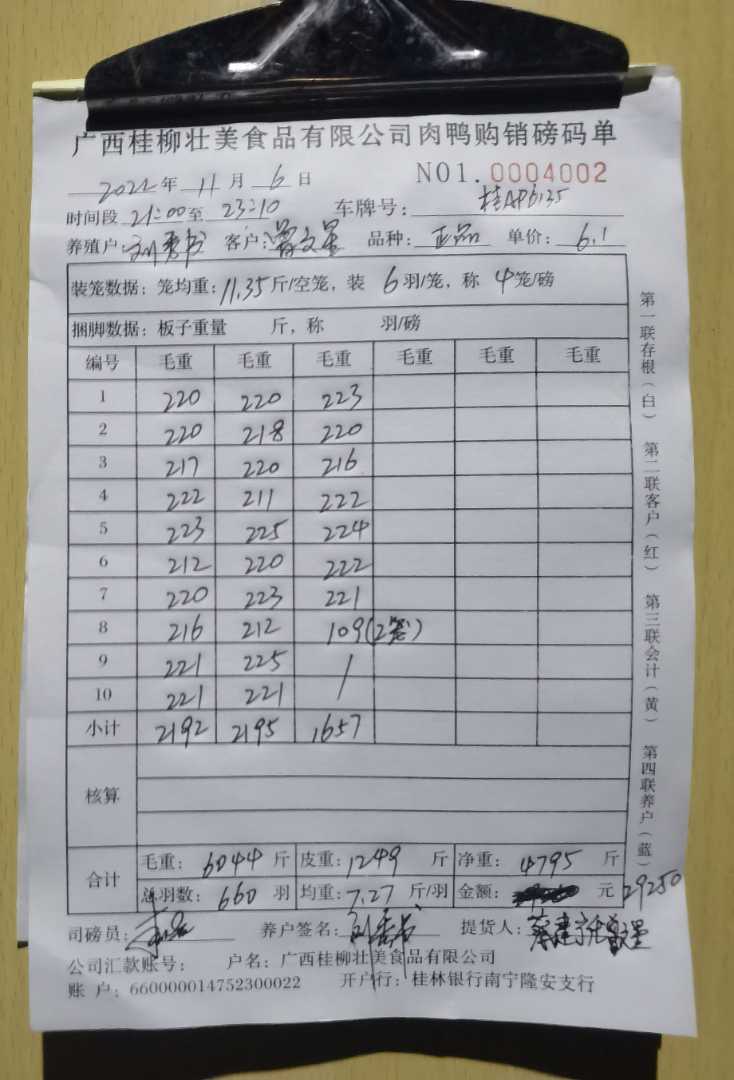 广西桂柳壮美食品有限公司肉鸭购销磅码单
2022年 11月 6日 NO1.0004002
时间段 21:00至 23:10 车牌号: 桂AP6135
养殖户: 客户: 曾文星 品种: 正品 单价: 6.1
装笼数据: 笼均重: 11.35斤/空笼, 装 6羽/笼, 称 4笼/磅
捆脚数据: 板子重量 斤, 称 羽/磅
编号 毛重 毛重 毛重 毛重 毛重 毛重
1 220 220 223
2 220 218 220
3 217 220 216
4 222 211 222
5 223 225 224
6 212 220 222
7 220 223 221
8 216 212 109(2笼)
9 221 225 /
10 221 221
小计 2192 2195 1657
核算
合计 毛重: 6044 斤 皮重: 1249 斤 净重: 4795 斤
总羽数: 660 羽 均重: 7.27 斤/羽 金额: 元 29250
司磅员: 养户签名: 提货人:
公司汇款账号: 户名: 广西桂柳壮美食品有限公司
账 户: 660000014752300022 开户行: 桂林银行南宁隆安支行
第一联存根(白) 第二联客户(红) 第三联会计(黄) 第四联养户(蓝)